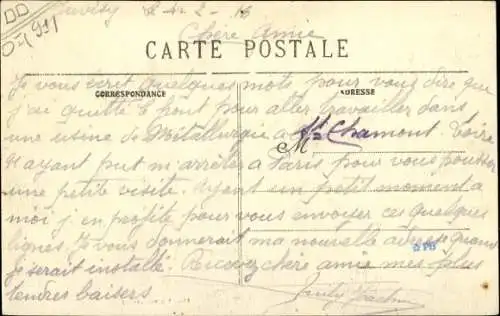 le 4. 2 - 16
Chère Amie
CARTE POSTALE
Je vous écrit quelques mots pour vous dire que
CORRESPONDANCE ADRESSE
j'ai quitté le pont pour aller travailler dans
une usine de Mitallurgie a St Chamont. Loire
M
ayant put m'arrêter a Paris pour vous pousser
une petite visite. Ayant un petit moment a
moi j'en profite pour vous envoiser ces quelques
lignes. Je vous donnerait ma nouvelle adresse quand
je serait installé. Recevez chère amie mes plus
tendres baisers